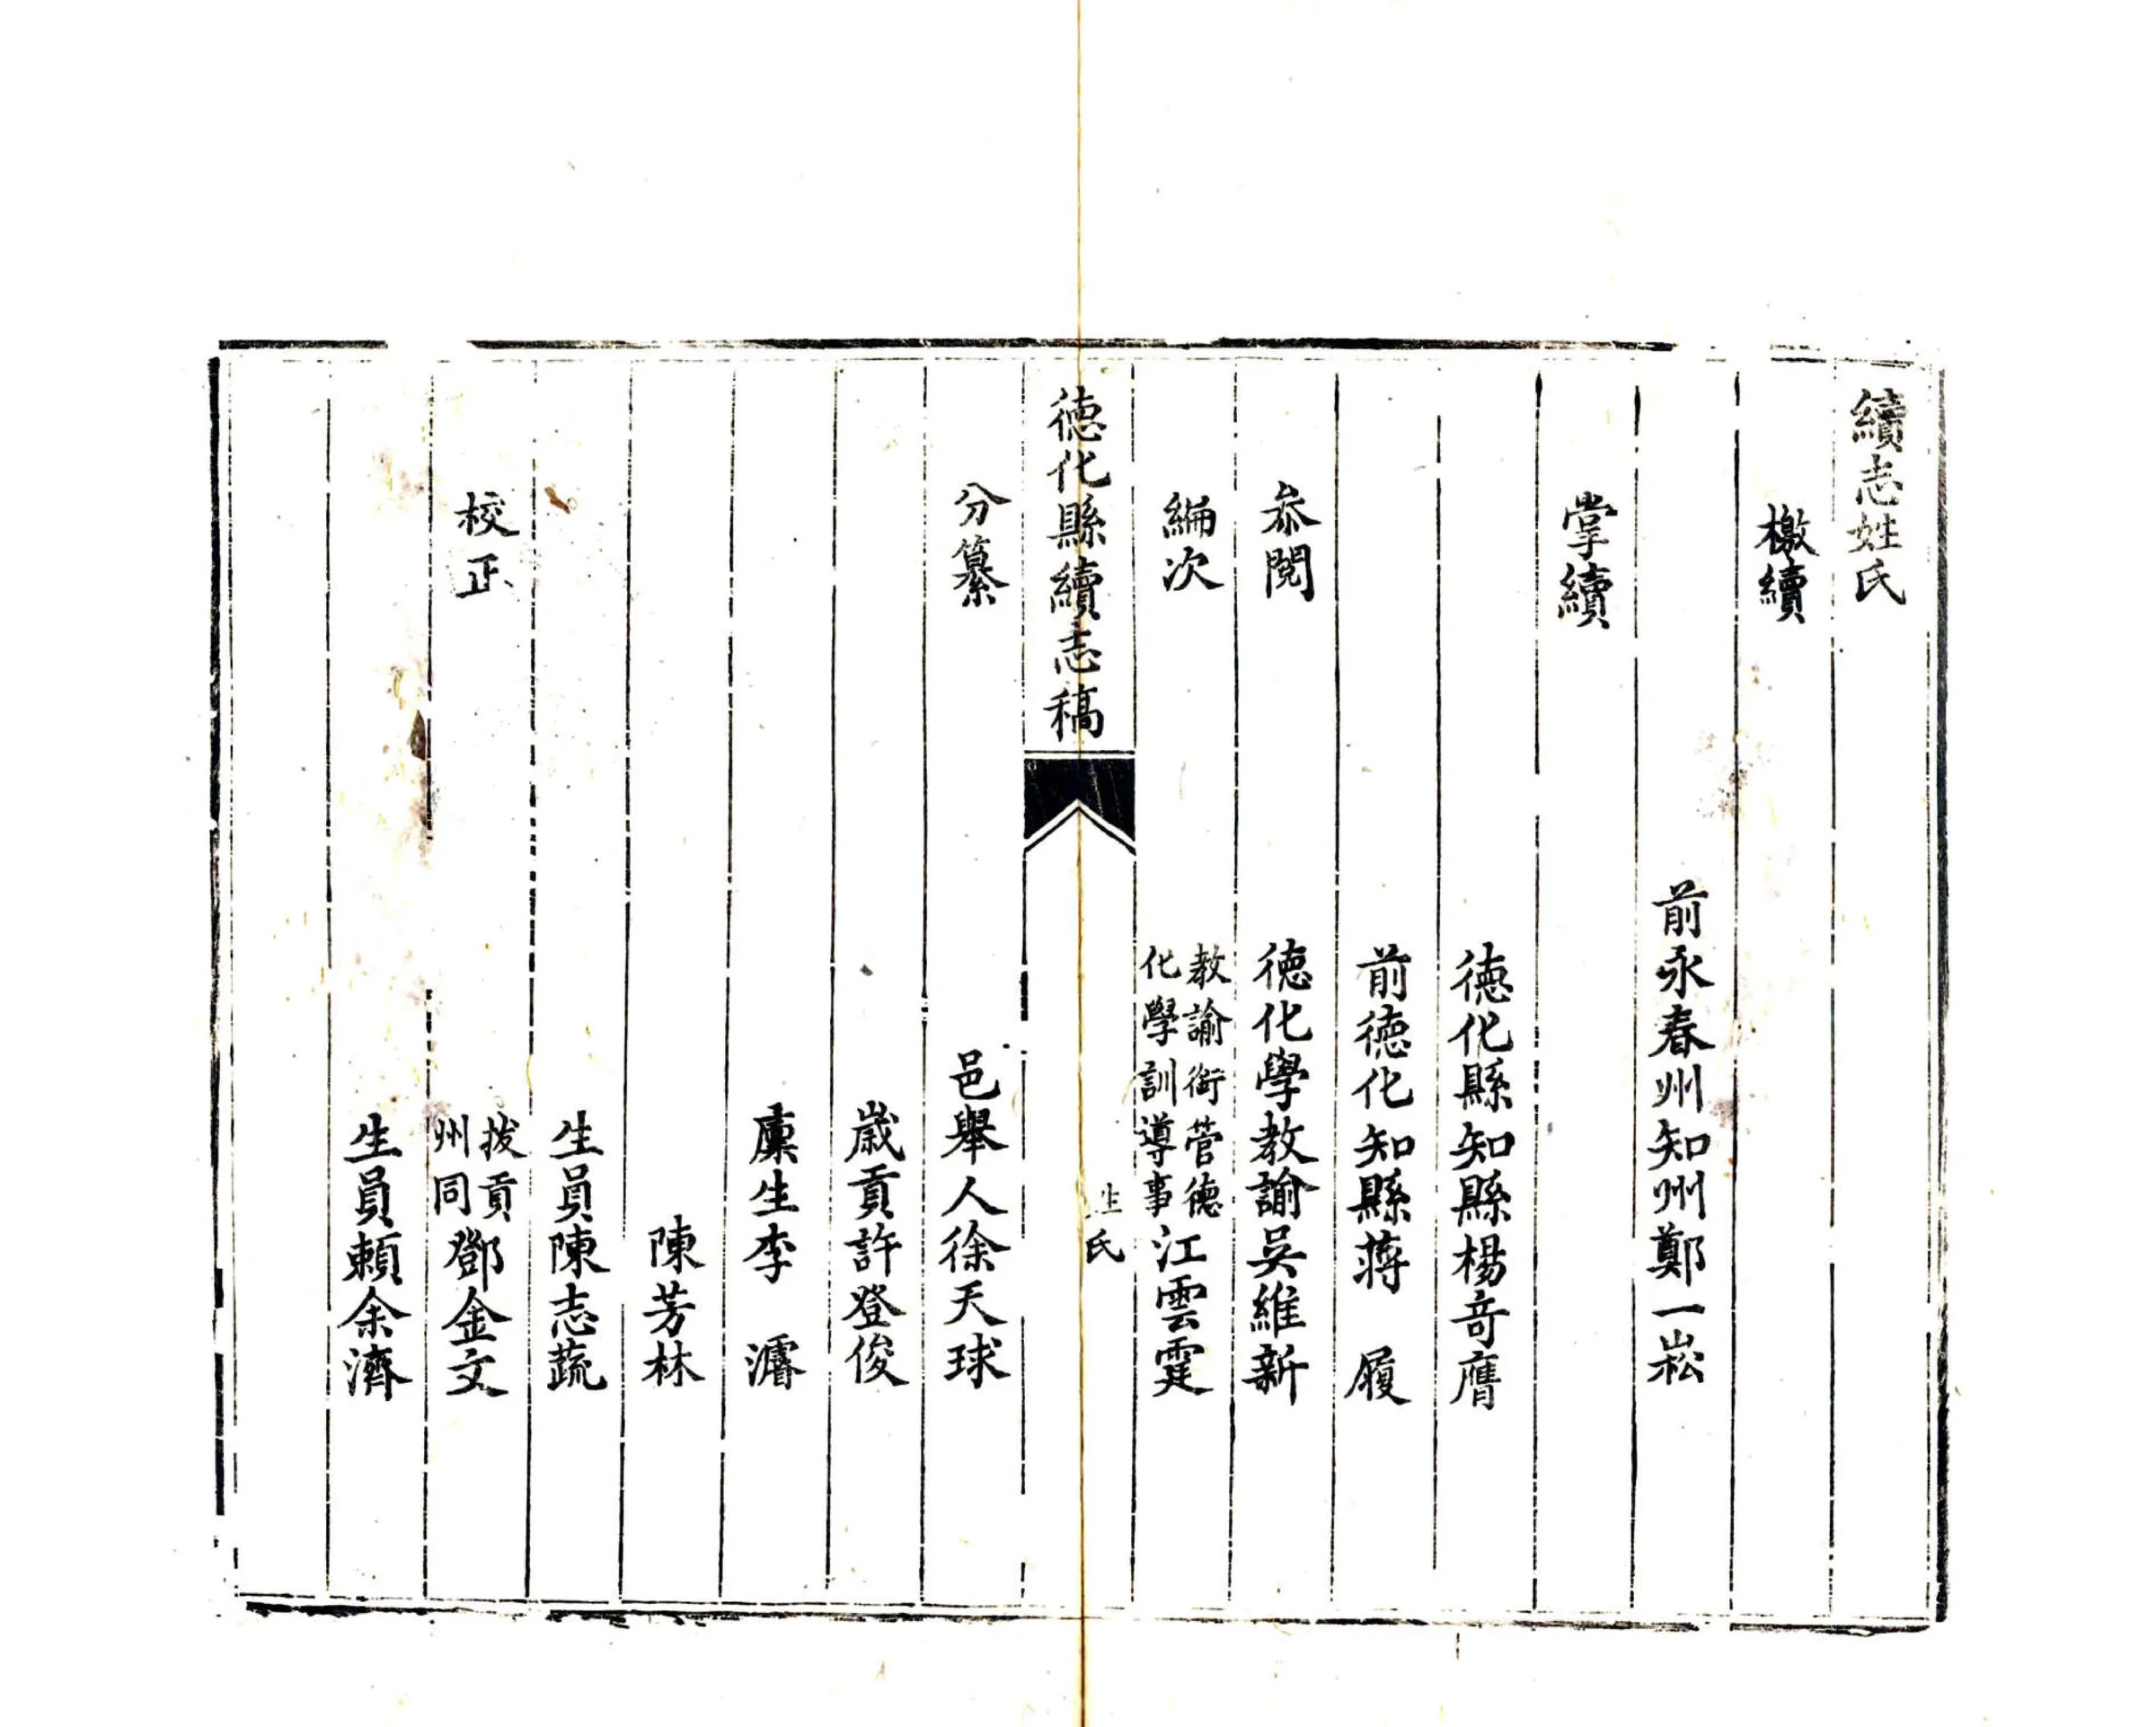 續志姓氏
檄續
前永春州知州鄭一崧
掌續
德化縣知縣楊奇膺
前德化知縣蔣　履
叅閱
德化學教諭吳維新
編次
教諭銜管德
化學訓導事
江雲霆
德化縣續志稿
姓氏
分纂
邑舉人徐天球
歲貢許登俊
廩生李　濬
陳芳林
生員陳志蔬
校正
拔貢
州同
鄧金文
生員賴余濟